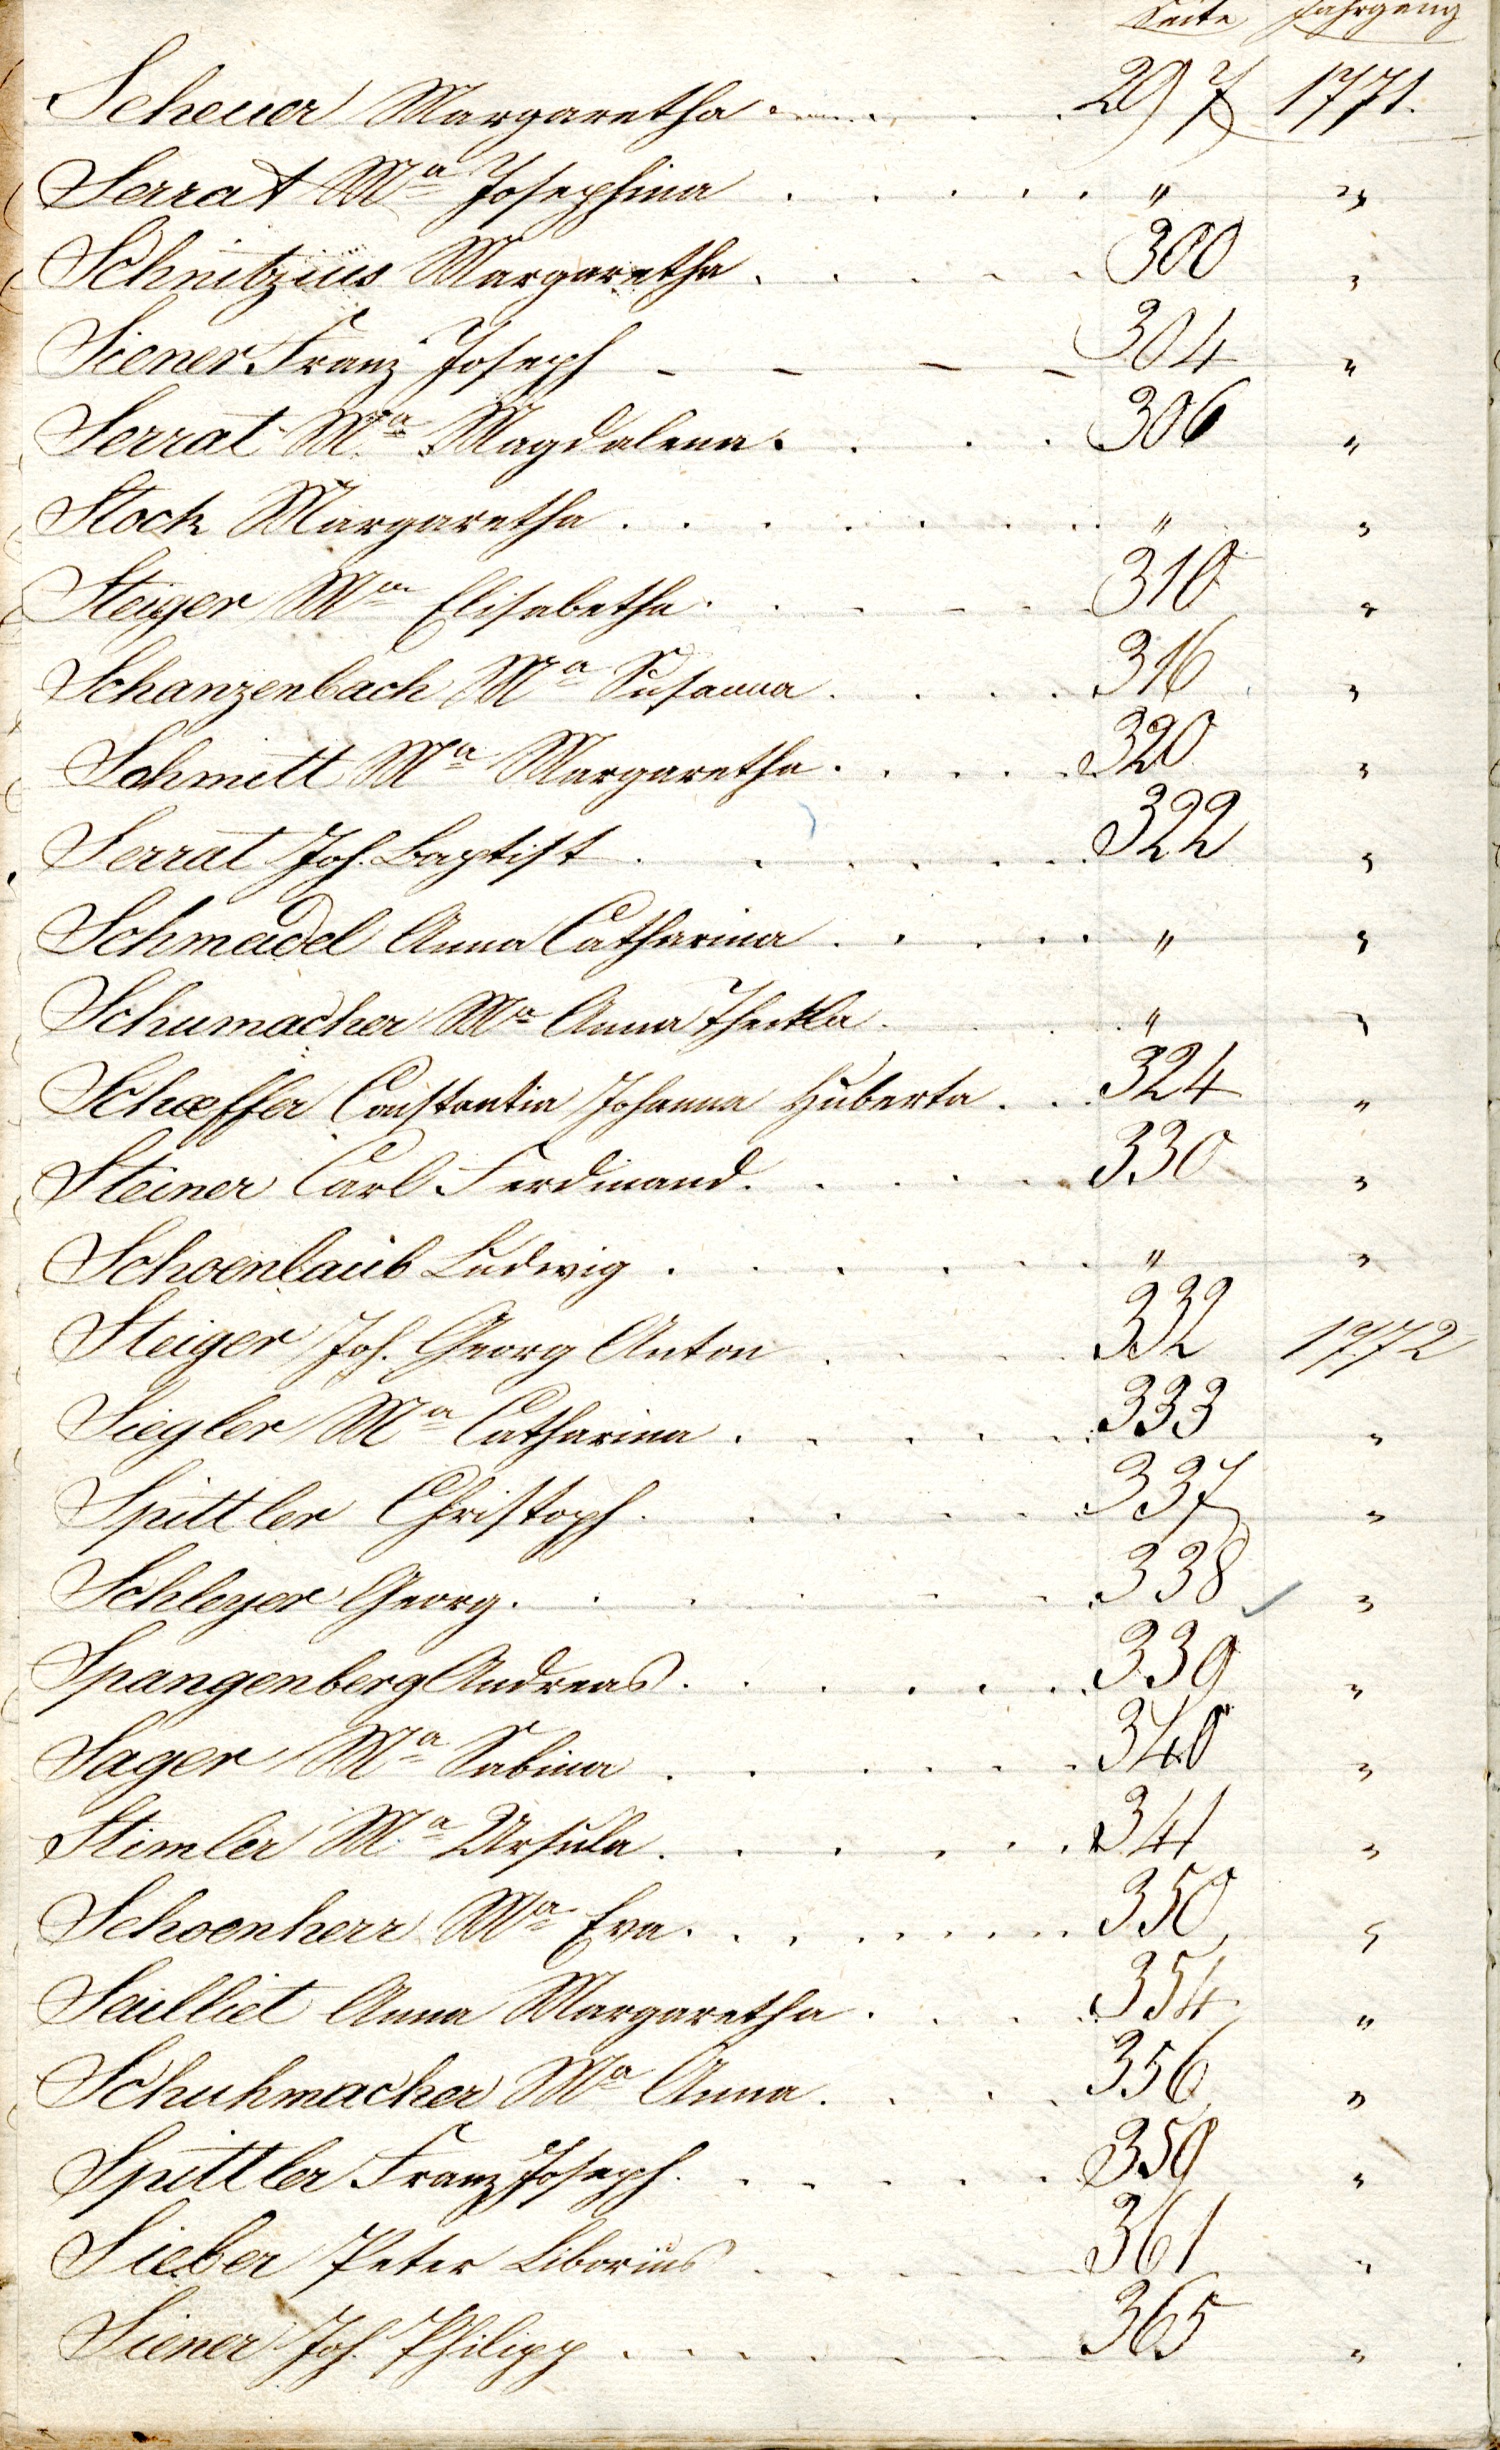 Seite Jahrgang
Scheuer Margaretha . . . 297 1771.
Serrat Ma Josephina . . . . . " "
Schnitzius Margaretha . . . . . 300 "
Siener Franz Joseph - - - - 304 "
Serrat Ma Magdalena . . . . 306 "
Stock Margaretha . . . . . . . " "
Steiger Ma Elisabetha . . . . . 310 "
Schanzenbach Ma Susanna . . . . 316 "
Schmitt Ma Margaretha . . . . . 320 "
Serrat Joh. Baptist . . . . . . 322 "
Schmadel Anna Catharina . . . . . " "
Schumacher Ma Anna Thekla . . . . " "
Schoeffer Constantia Johanna Huberta . . 324 "
Steiner Carl Ferdinand . . . . . 330 "
Schoenlaub Ludwig . . . . . . " "
Steiger Joh. Georg Anton . . . . 332 1772
Siegler Ma Catharina . . . . . 333 "
Spittler Christoph . . . . . . 337 "
Schleyer Georg . . . . . . . 338 "
Spangenberg Andreas . . . . . . 339 "
Sager Ma Sabina . . . . . . 340 "
Stimler Ma Ursula . . . . . . 341 "
Schoenherr Ma Eva . . . . . . . 350 "
Sailliet Anna Margaretha . . . . 354 "
Schuhmacher Ma Anna . . . . 356 "
Spittler Franz Joseph . . . . . . 359 "
Sieber Peter Liborius . . . . . 361 "
Siener Joh. Philipp . . . . . . 365 "